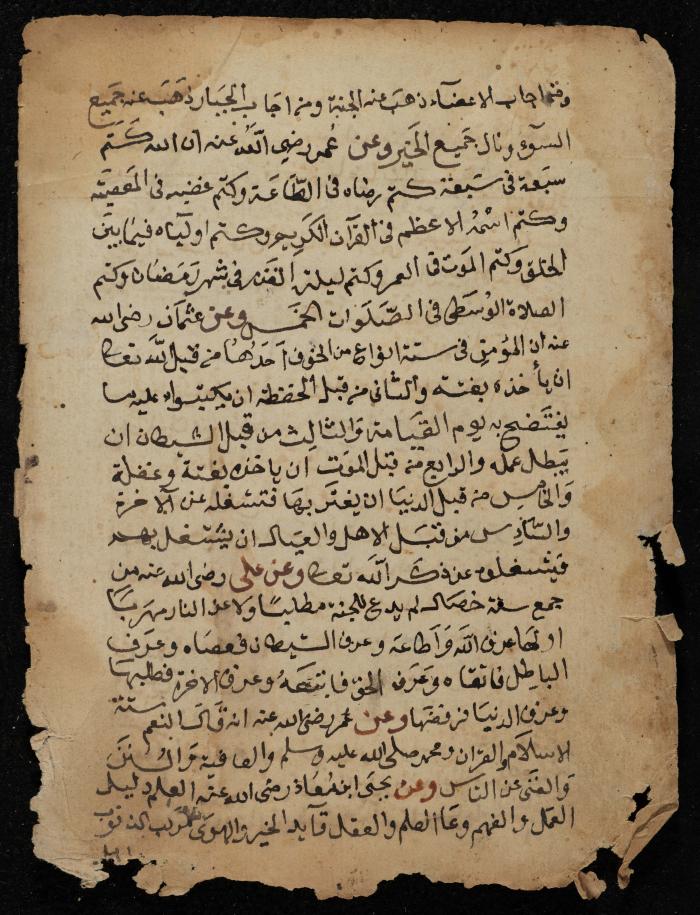 ومن اجاب الاعضاء ذهب عنه الجنة ومن اجاب الجبار ذهب عنه جميع
السوء ونال جميع الخير وعن عمر رضي الله عنه ان الله كتم
سبعة في سبعة كتم رضاه في الطاعة وكتم غضبه في المعصية
وكتم اسمه الاعظم في القرآن الكريم وكتم اولياه فيما بين
الخلق وكتم الموت في العمر وكتم ليلة القدر في شهر رمضان وكتم
الصلاة الوسطى في الصلوات الخمس وعن عثمان رضى الله
عنه ان المؤمن في ستة انواع من الخوف احدها من قبل الله تعالى
ان ياخذه بغتة والثاني من قبل الحفظة ان يكتبوا عليه ما
يفتضح به يوم القيامة والثالث من قبل الشيطان ان
يبطل عمله والرابع من قبل الموت ان ياخذه بغتة وغفلة
والخامس من قبل الدنيا ان يغتر بها فتشغله عن الآخرة
والسادس من قبل الاهل والعيال ان يشتغل بهم
فيشغلوه عن ذكر الله تعالى وعن على رضى الله عنه من
جمع ستة خصال لم يدع للجنة مطلبا ولا عن النار مهربا
اولها عرف الله واطاعه وعرف الشيطان فعصاه وعرف
الباطل فاتقاه وعرف الحق فاتبعه وعرف الاخرة فطلبها
وعرف الدنيا فرفضها وعن عمر رضى الله عنه انه قال النعم ستة
الاسلام والقران ومحمد صلى الله عليه وسلم والعافية والستر
والغنى عن الناس وعن يحيى ابن معاذ رضى الله عنه العلم دليل
العمل والفهم وعا العلم والعقل قايد الخير والهوى مركب الذنوب